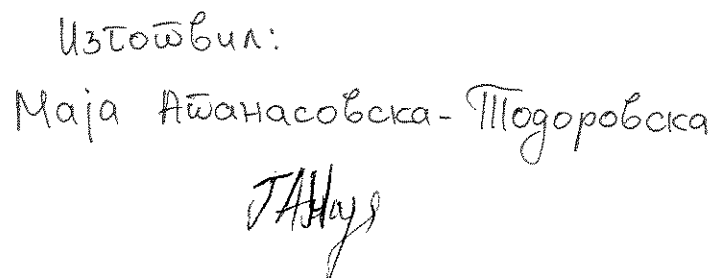 Изготвил:
Маја Атанасовска-Тодоровска